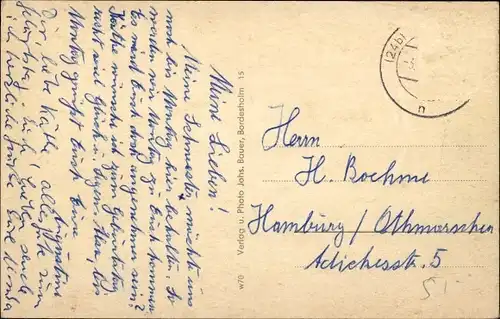 Meine Lieben!
Meine Schwester möchte uns
noch bis Montag hier behalten. So
werden wir Montag zu Euch kommen
Es wird Euch doch angenehm sein?
Käthe wünsche ich zum Geburtstag
recht viel Glück u. Segen. Also, bis
Montag grüßt Euch Eure
Dir, liebe Käthe, alles Gute zum
herzliche Grüße Eure
Verlag u. Photo Johs. Bauer, Bordesholm 15
w70
(24b)
n
Herrn
H. Boehme
Hamburg / Othmarschen
Adickesstr. 5
51